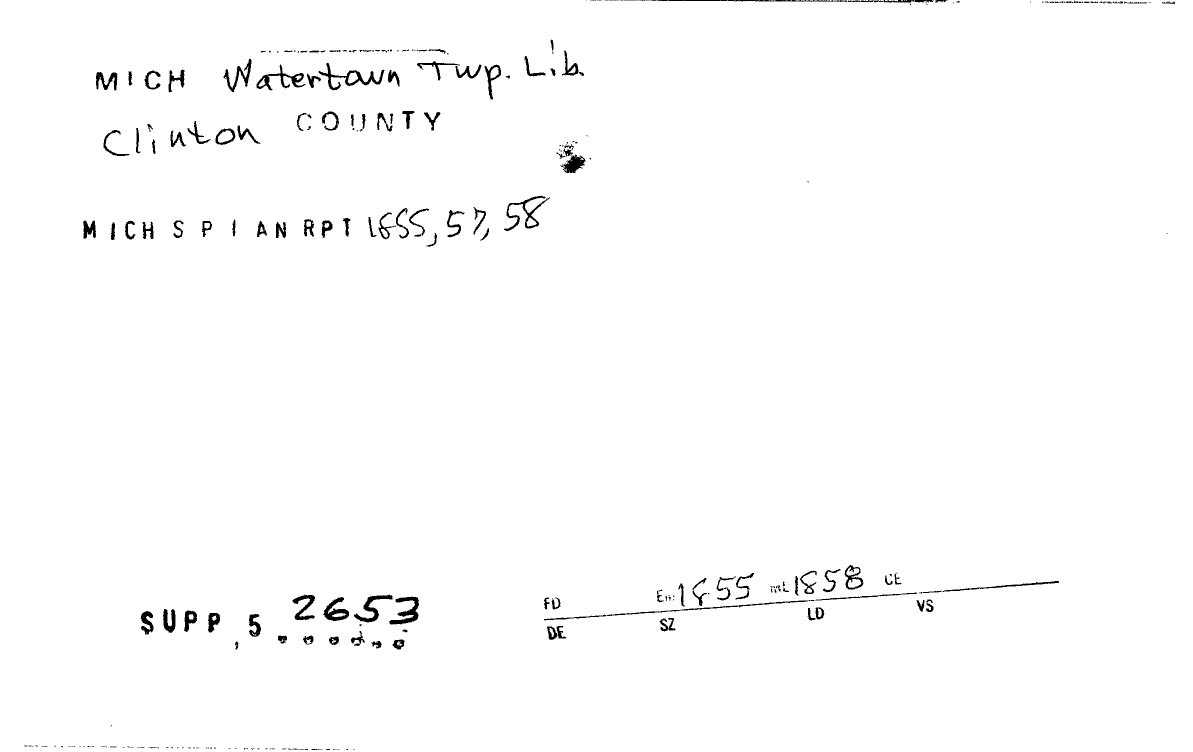 MICH Watertown Twp. Lib.
Clinton COUNTY
MICH S P I AN RPT 1855, 57, 58
SUPP, 5 2653
FD 1855 1858 CE
DE SZ LD VS